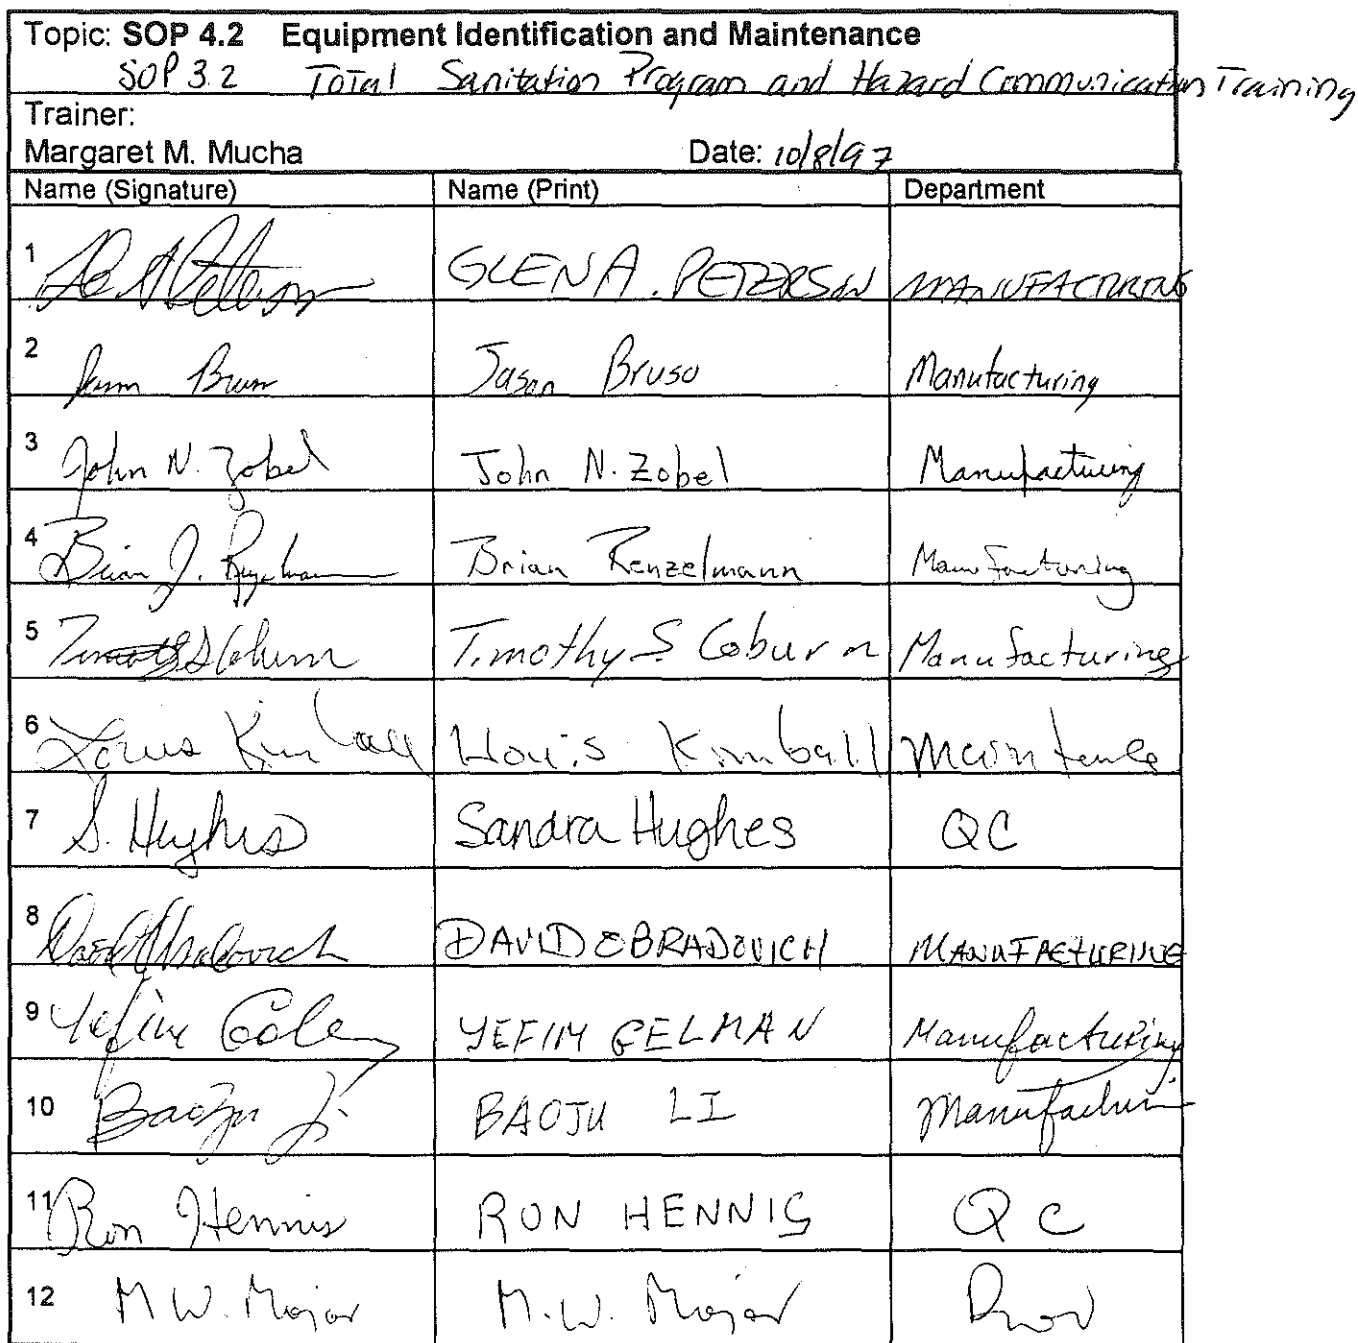 Topic: SOP 4.2 Equipment Identification and Maintenance
SOP 3.2 Total Sanitation Program and Hazard Communication Training
Trainer:
Margaret M. Mucha Date: 10/8/97
Name (Signature) Name (Print) Department
1 GLEN A. PETERSON MANUFACTURING
2 Jason Bruso Manufacturing
3 John N. Zobel John N. Zobel Manufacturing
4 Brian J. Brian Renzelmann Manufacturing
5 Timothy S Coburn Timothy S. Coburn Manufacturing
6 Louis Kimball Louis Kimball
7 S. Hughes Sandra Hughes QC
8 DAVID OBRADOVICH MANUFACTURING
9 Yefim YEFIM GELMAN Manufacturing
10 Baoju Li BAOJU LI Manufacturin
11 Ron Hennis RON HENNIS QC
12 M W. Major M.W. Major Prod